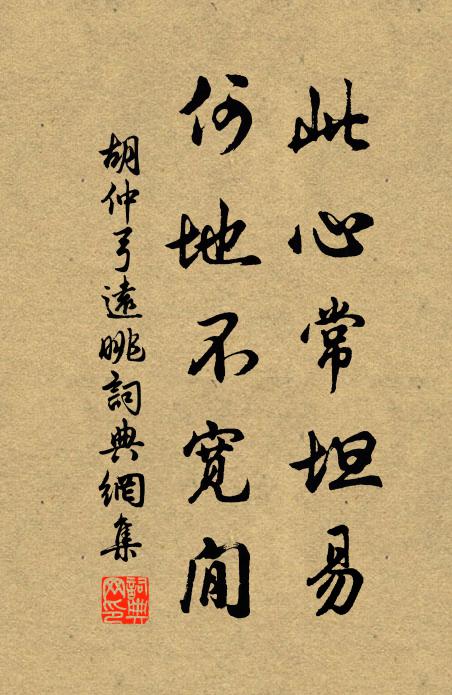 此心常坦易
何地不宽閒
胡仲弓遠眺詞典網集
詞典网印